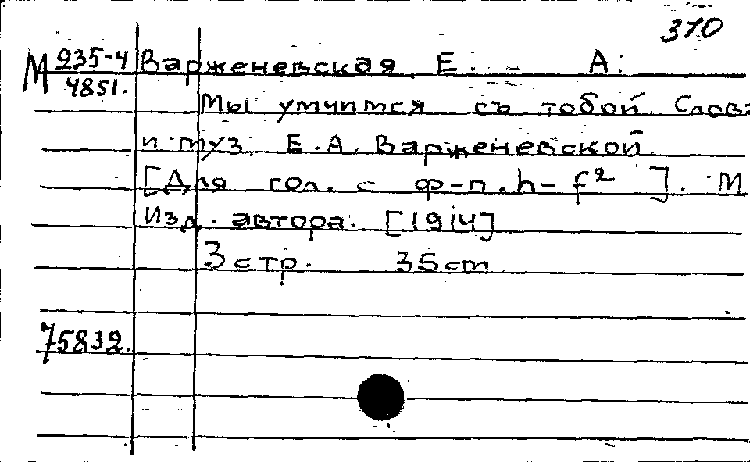 370
М 935-4 Варженевская Е. - А.
4851.
Мы умчимся съ тобой Слова
и муз Е.А. Варженевской
[Для гол. с ф-п. h-f² ]. М
Изд. автора. [1914]
3 стр. 35 cm
75832.